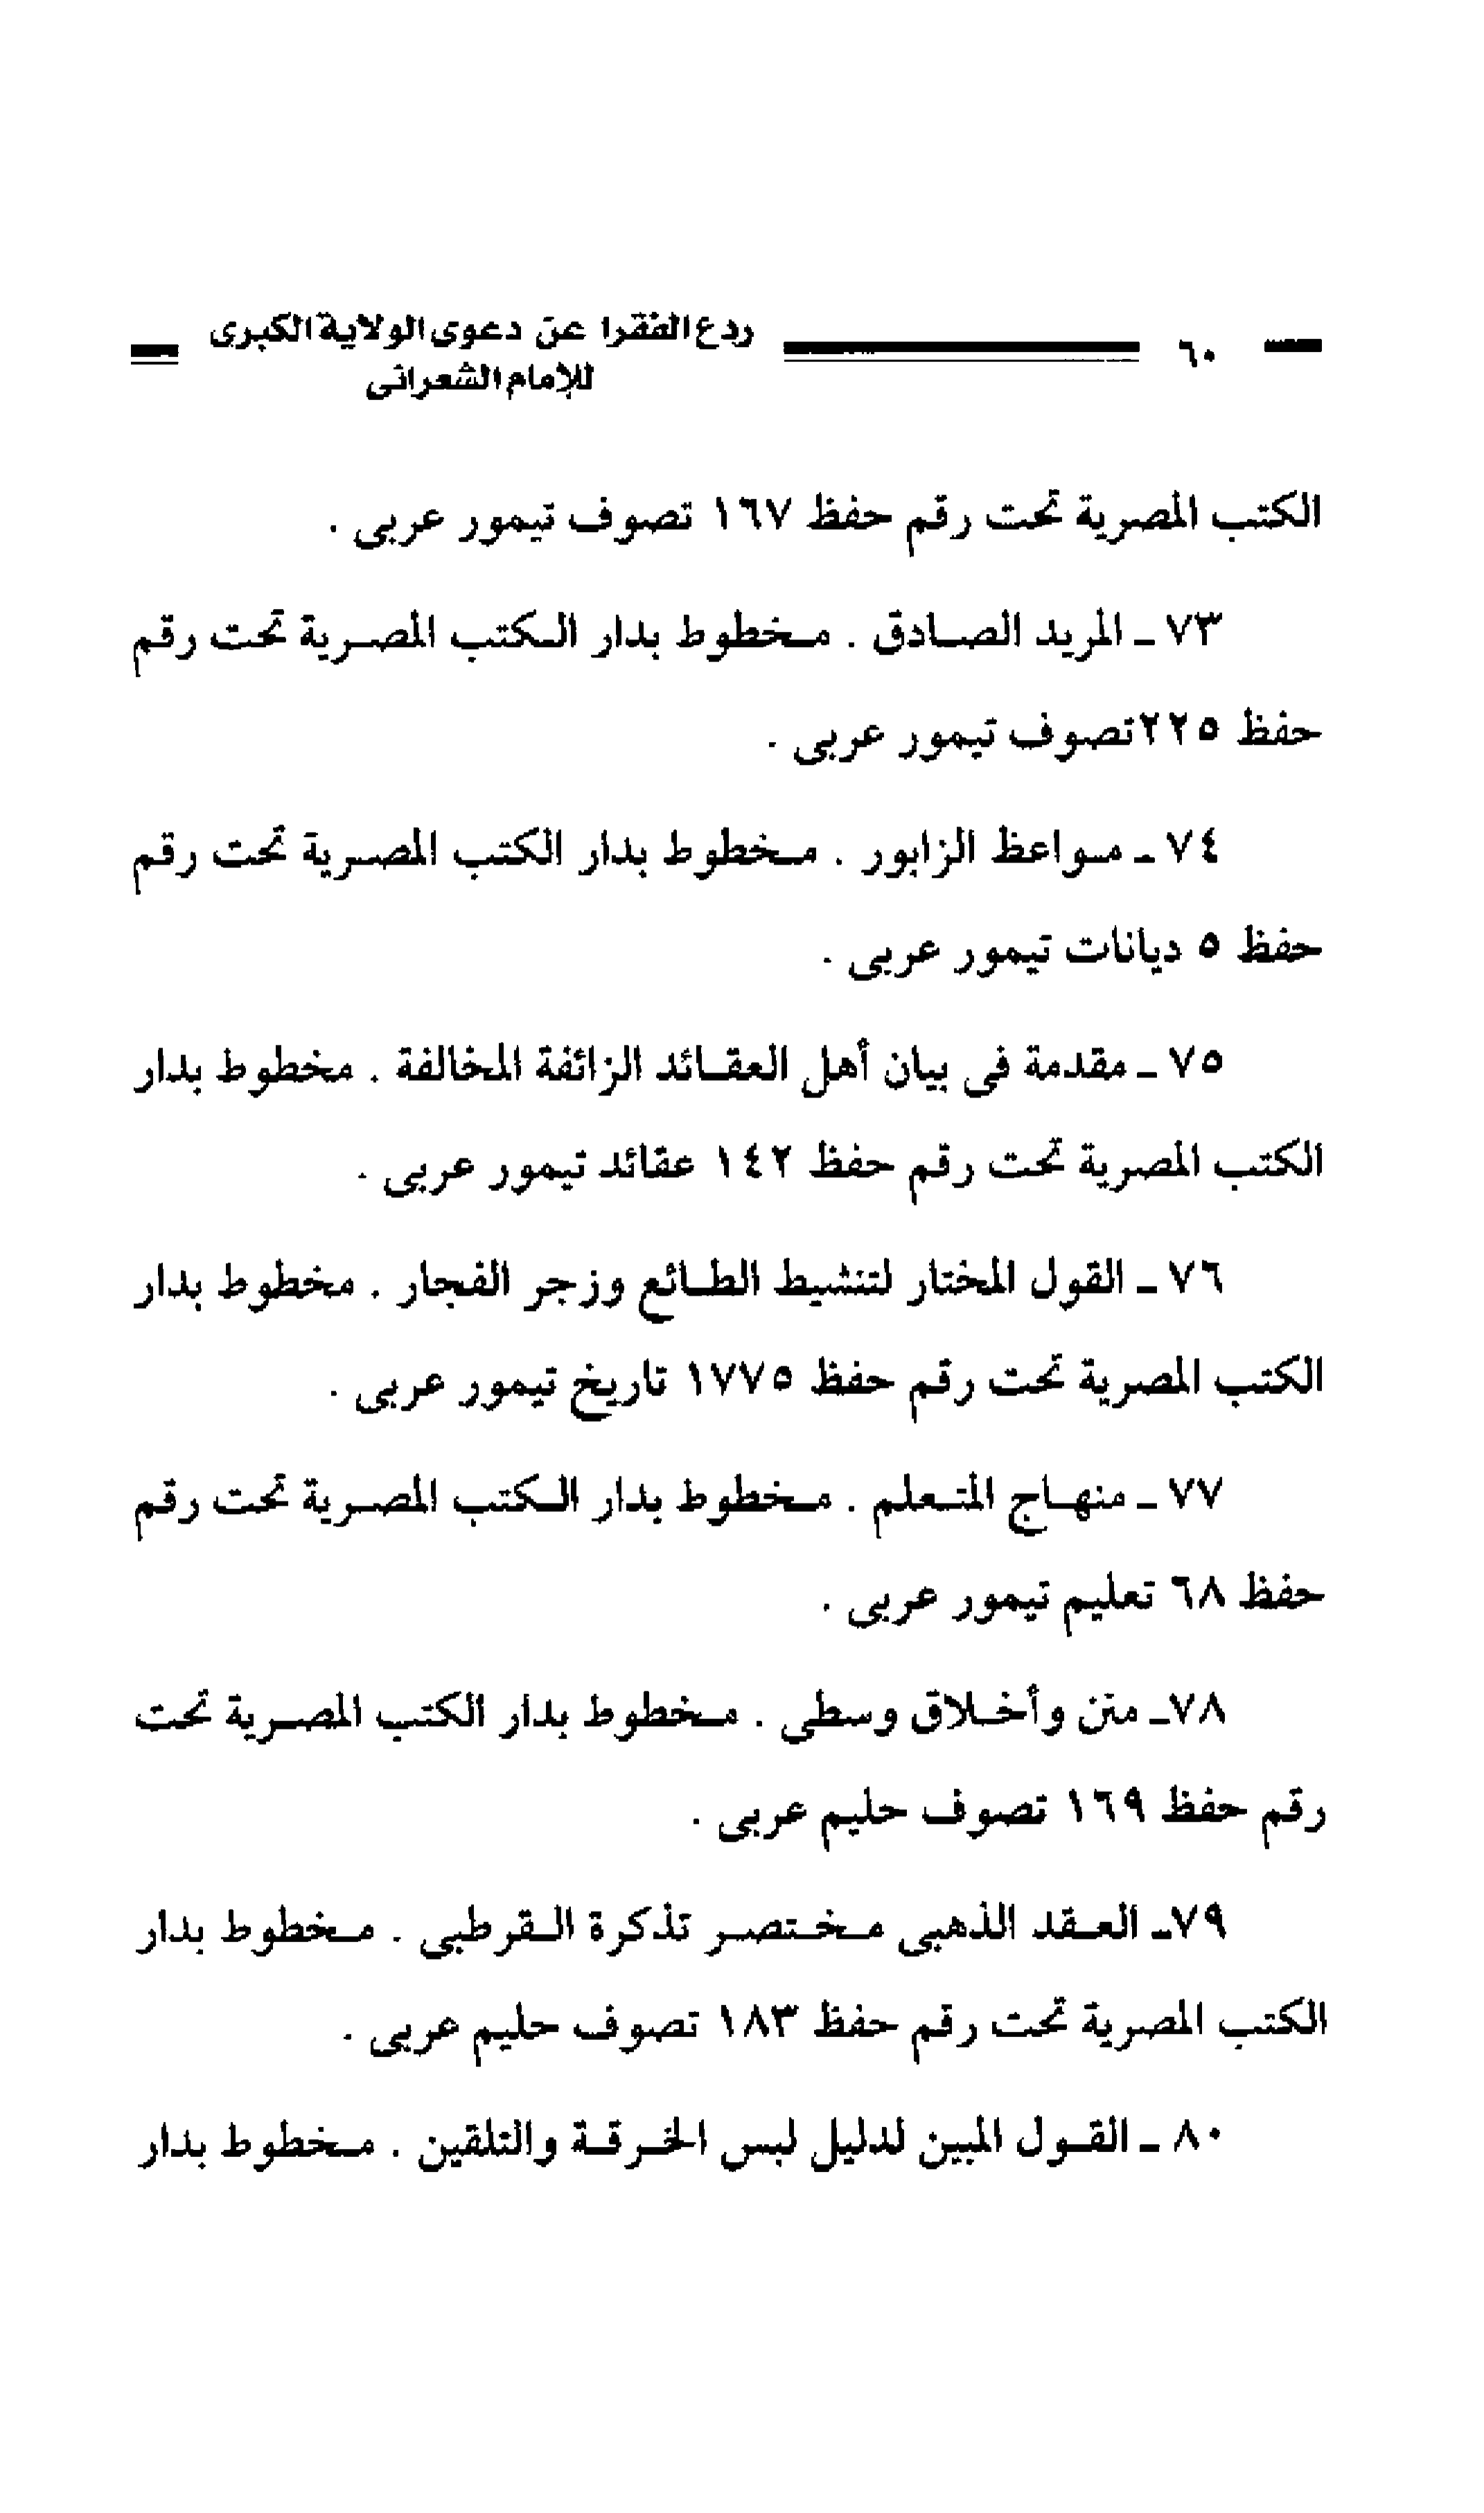 ٦٠ ردع الفقرا عن دعوى الولاية الكبرى
للإمام الشعرانى
الكتب المصرية تحت رقم حفظ ١٦٧ تصوف تيمور عربى .
٧٣ - المريد الصادق . مخطوط بدار الكتب المصرية تحت رقم
حفظ ٢٢٥تصوف تيمور عربى .
٧٤ - مواعظ الزابور . مخطوط بدار الكتب المصرية تحت رقم
حفظ ٥ ديانات تيمور عربى .
٧٥ - مقدمة فى بيان أهل العقائد الزائفة المخالفة . مخطوط بدار
الكتب المصرية تحت رقم حفظ ١٤٢ عقائد تيمور عربى .
٧٦ - القول المختار لتنشيط الطائع وزجر الفجار . مخطوط بدار
الكتب المصرية تحت رقم حفظ ١٧٧٥ تاريخ تيمور عربى .
٧٧ - منهاج المتعلم . مخطوط بدار الكتب المصرية تحت رقم
حفظ ٦٨ تعليم تيمور عربى .
٧٨- منن وأخلاق وسطى . مخطوط بدار الكتب المصرية تحت
رقم حفظ ١٦٩ تصوف حليم عربى .
٧٩- العقد الذهبى مختصر تذكرة القرطبى . مخطوط بدار
الكتب المصرية تحت رقم حفظ ١٨٣ تصوف حليم عربى .
٨٠ - القول المبين لدليل لبس الخرقة والتلقين . مخطوط بدار